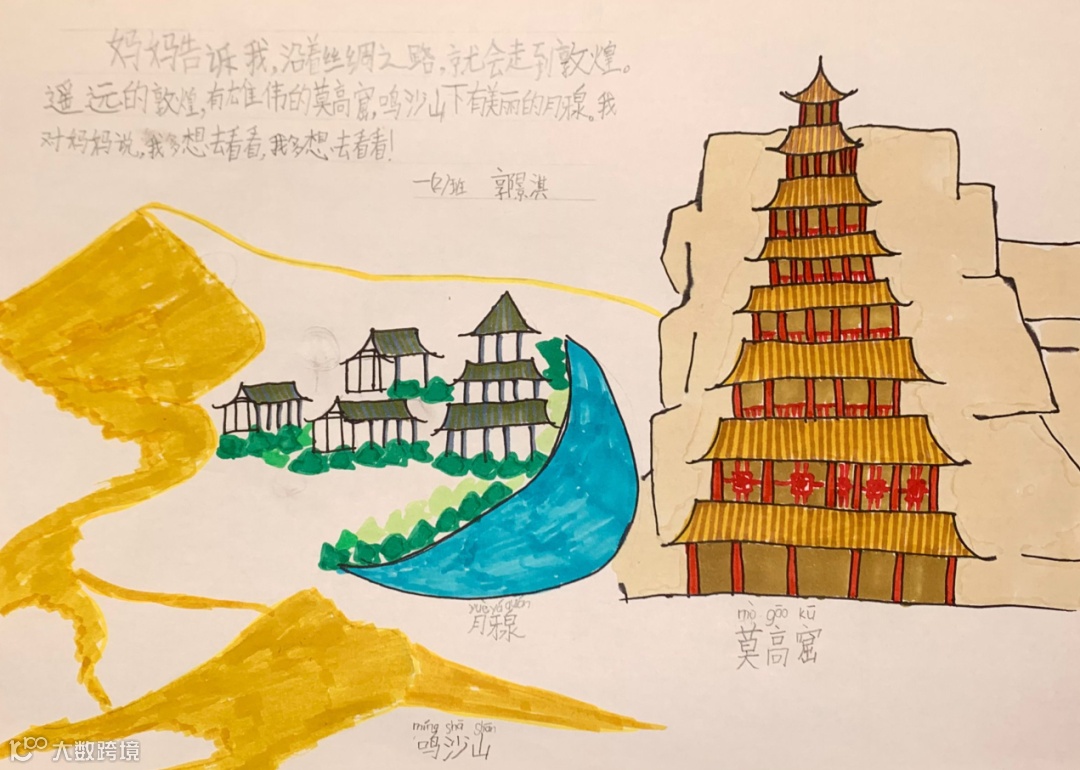 妈妈告诉我，沿着丝绸之路，就会走到敦煌。
遥远的敦煌，有雄伟的莫高窟，鸣沙山下有美丽的月牙泉。我
对妈妈说，我多想去看看，我多想去看看！
一(2)班 郭景淇
yuè yá quán
月牙泉
mò gāo kū
莫高窟
míng shā shān
鸣沙山
大数跨境